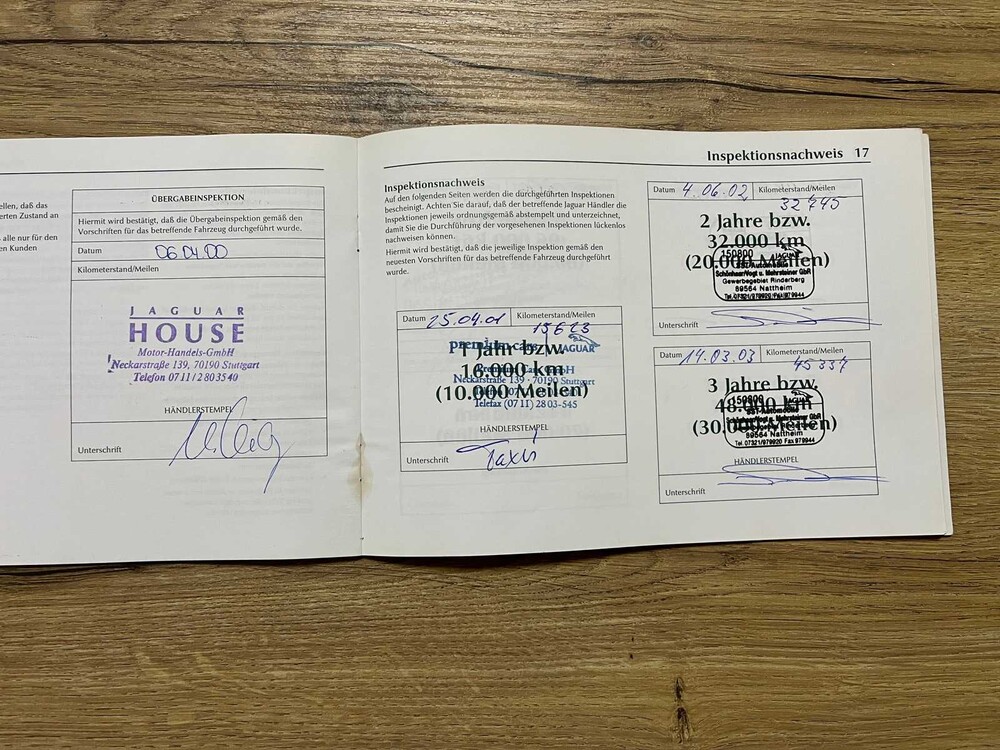 ellen, daß das
erten Zustand an
s alle nur für den
en Kunden
ÜBERGABEINSPEKTION
Hiermit wird bestätigt, daß die Übergabeinspektion gemäß den
Vorschriften für das betreffende Fahrzeug durchgeführt wurde.
Datum 06.04.00
Kilometerstand/Meilen
JAGUAR
HOUSE
Motor-Handels-GmbH
Neckarstraße 139, 70190 Stuttgart
Telefon 0711/2803540
HÄNDLERSTEMPEL
Unterschrift
Inspektionsnachweis 17
Inspektionsnachweis
Auf den folgenden Seiten werden die durchgeführten Inspektionen
bescheinigt. Achten Sie darauf, daß der betreffende Jaguar Händler die
Inspektionen jeweils ordnungsgemäß abstempelt und unterzeichnet,
damit Sie die Durchführung der vorgesehenen Inspektionen lückenlos
nachweisen können.
Hiermit wird bestätigt, daß die jeweilige Inspektion gemäß den
neuesten Vorschriften für das betreffende Fahrzeug durchgeführt
wurde.
Datum 25.04.01 Kilometerstand/Meilen
15623
premium cars JAGUAR
1 Jahr bzw.
16.000 km
Neckarstraße 139 · 70190 Stuttgart
(10.000 Meilen)
Telefax (0711) 2803-545
HÄNDLERSTEMPEL
Unterschrift
Datum 4.06.02 Kilometerstand/Meilen
32445
2 Jahre bzw.
32.000 km
150800 JAGUAR
(20.000 Meilen)
Schönhaar/Vogt u. Mehrsteiner GbR
Gewerbegebiet Rinderberg
89564 Nattheim
Tel. 07321/979920/Fax/979944
Unterschrift
Datum 14.03.03 Kilometerstand/Meilen
45334
3 Jahre bzw.
48.000 km
150800
SST-Automobile
(30.000 Meilen)
89564 Nattheim
Tel. 07321/979920 Fax 979944
HÄNDLERSTEMPEL
Unterschrift